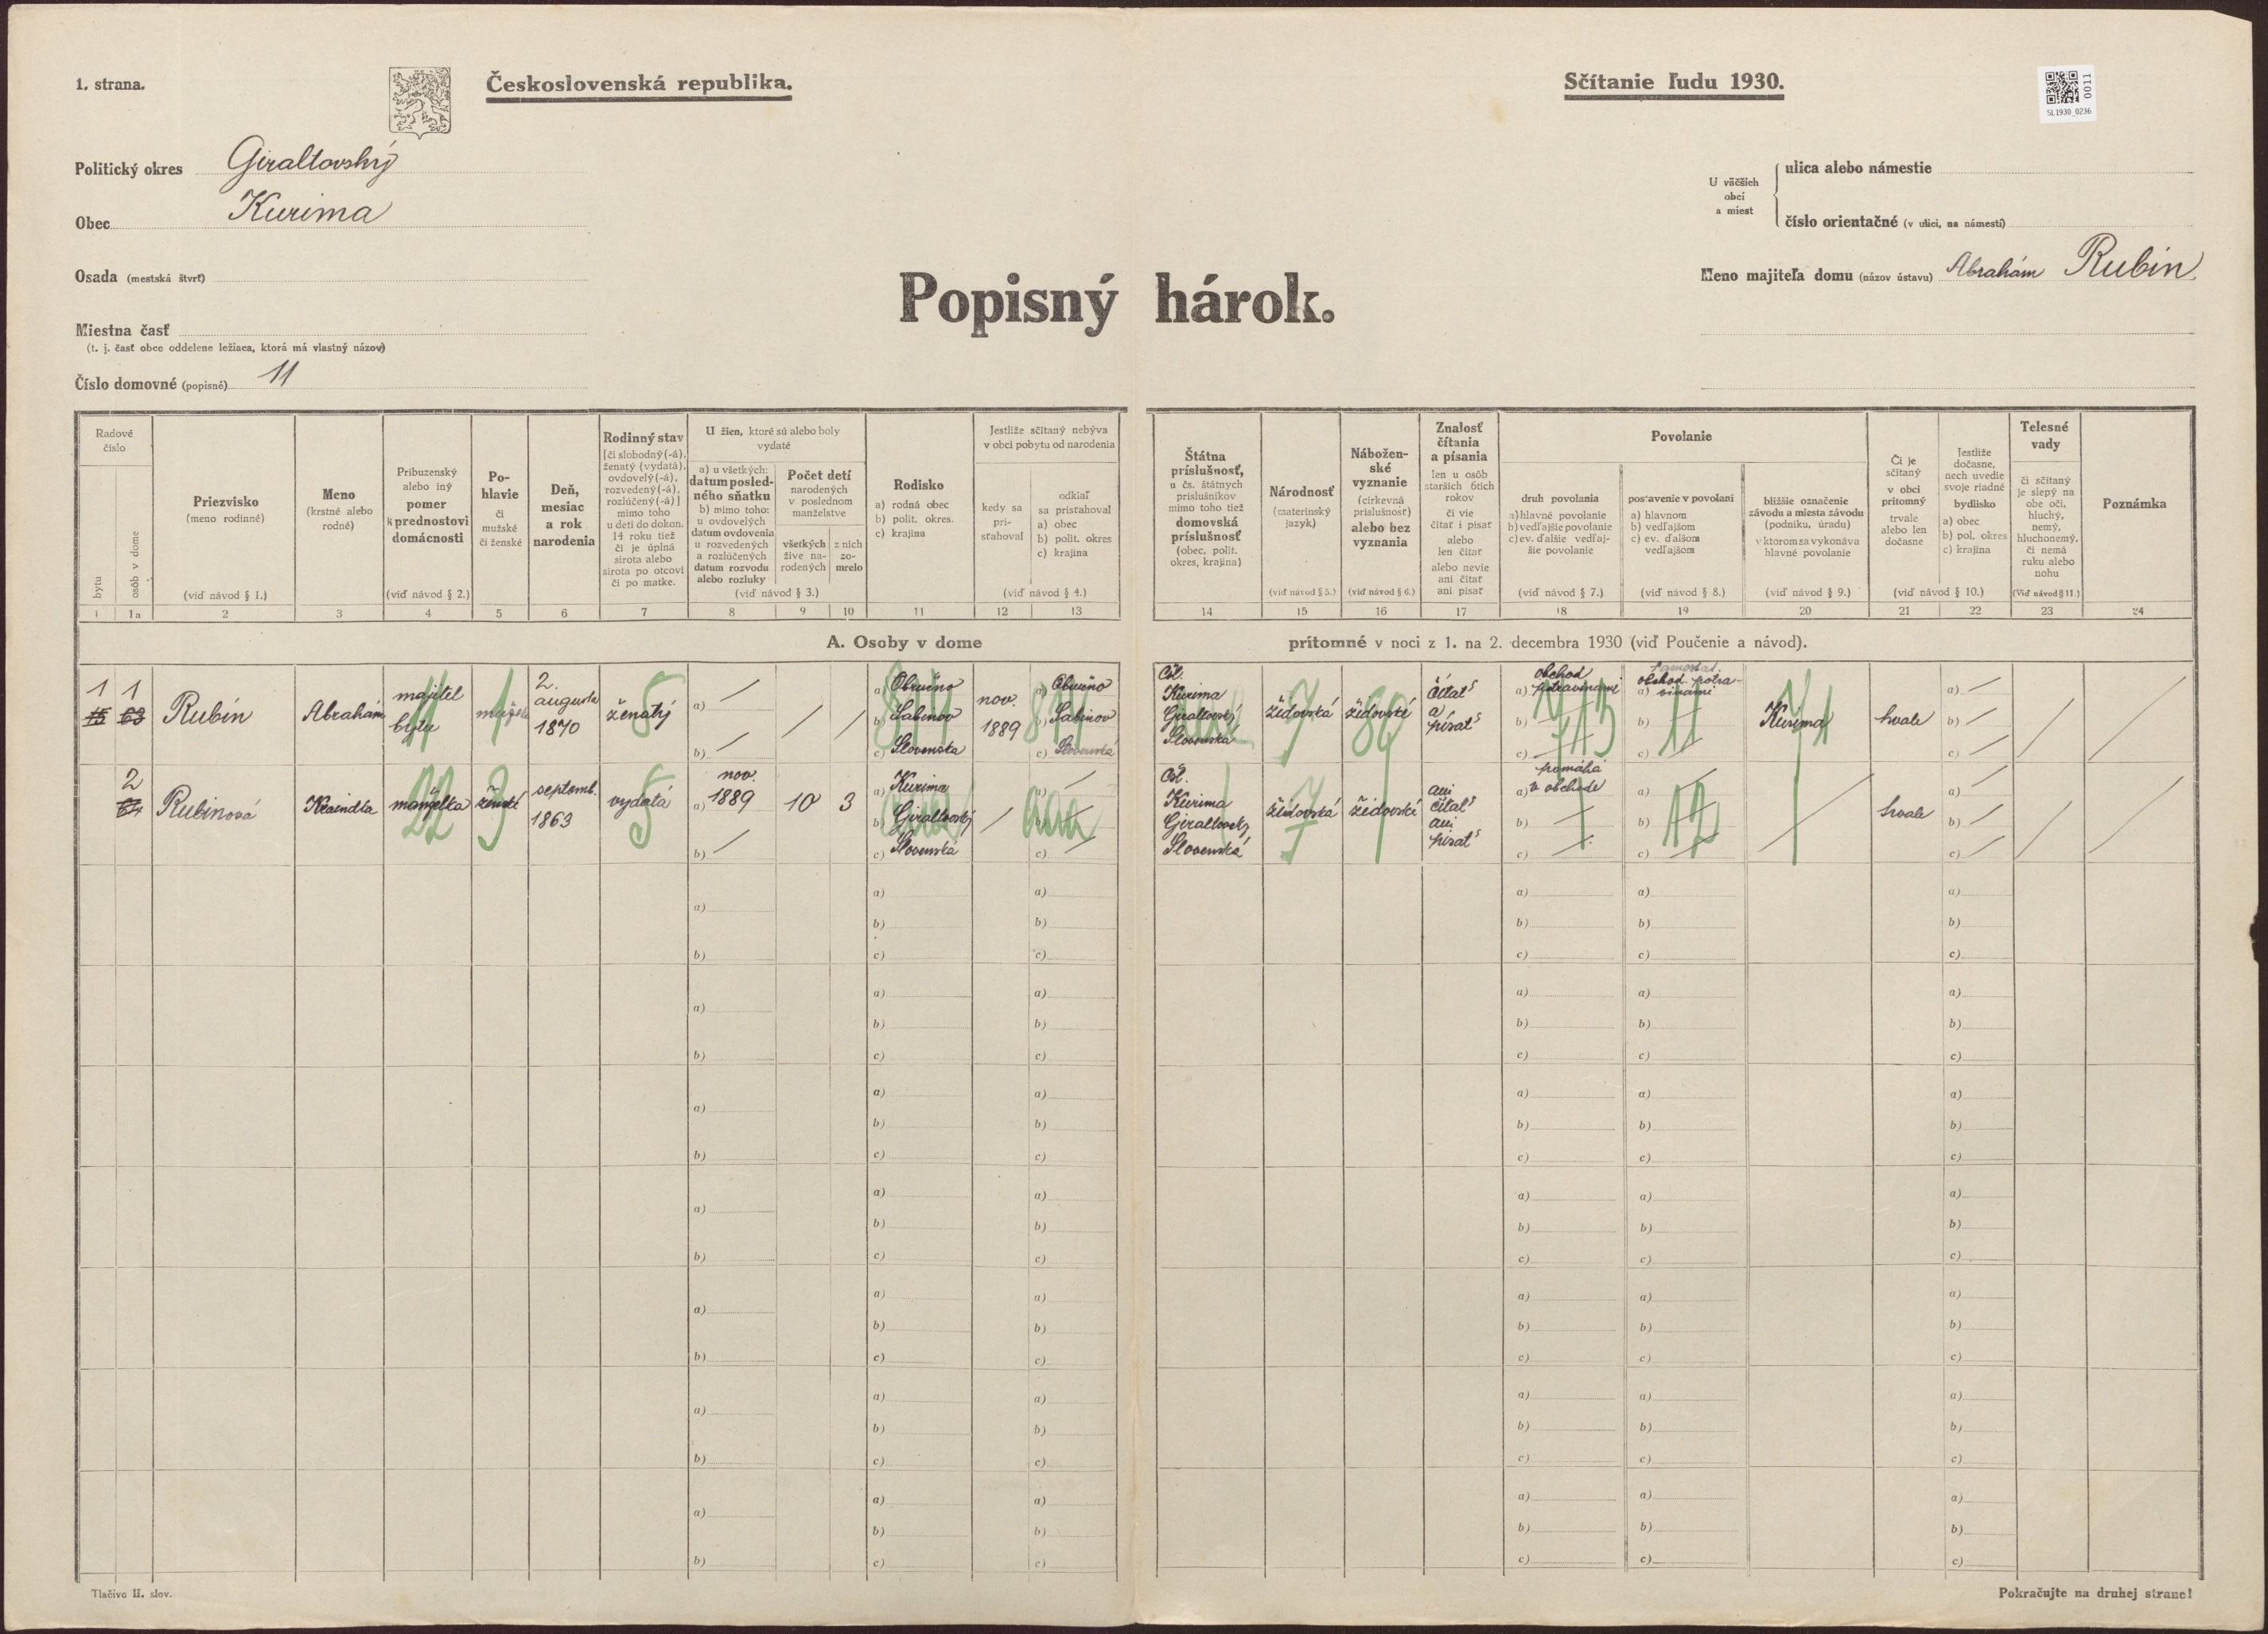 1. strana.
Československá republika.
Sčítanie ľudu 1930.
0011
SL1930_0236
Politický okres Giraltovský
Obec Kurima
Osada (mestská štvrť)
Miestna časť
(t. j. časť obce oddelene ležiaca, ktorá má vlastný názov)
Číslo domovné (popisné) 11
Popisný hárok.
U väčších obcí a miest
ulica alebo námestie
číslo orientačné (v ulici, na námestí)
Meno majiteľa domu (názov ústavu) Abrahám Rubin
Radové číslo
bytu
osôb v dome
Priezvisko
(meno rodinné)
(viď návod § 1.)
Meno
(krstné alebo rodné)
Príbuzenský alebo iný pomer k prednostovi domácnosti
(viď návod § 2.)
Pohlavie
či mužské či ženské
Deň, mesiac a rok narodenia
Rodinný stav
[či slobodný (-á), ženatý (vydatá), ovdovelý (-á), rozvedený (-á), rozlúčený (-á)]
mimo toho u detí do dokon. 14 roku tiež či je úplná sirota alebo sirota po otcovi či po matke.
U žien, ktoré sú alebo boly vydaté
a) u všetkých: datum posledného sňatku
b) mimo toho: u ovdovelých datum ovdovenia u rozvedených a rozlúčených datum rozvodu alebo rozluky
Počet detí
narodených v poslednom manželstve
všetkých žive narodených
z nich zomrelo
(viď návod § 3.)
Rodisko
a) rodná obec
b) polit. okres.
c) krajina
Jestliže sčítaný nebýva v obci pobytu od narodenia
kedy sa prisťahoval
odkiaľ sa prisťahoval
a) obec
b) polit. okres
c) krajina
(viď návod § 4.)
Štátna príslušnosť,
u čs. štátnych príslušníkov mimo toho tiež
domovská príslušnosť
(obec. polit. okres, krajina)
Národnosť
(materinský jazyk)
(viď návod § 5.)
Náboženské vyznanie
(cirkevná príslušnosť)
alebo bez vyznania
(viď návod § 6.)
Znalosť čítania a písania
len u osôb starších 6tich rokov
či vie čítať i písať alebo len čítať alebo nevie ani čítať ani písať
Povolanie
druh povolania
a) hlavné povolanie
b) vedľajšie povolanie
c) ev. ďalšie vedľajšie povolanie
(viď návod § 7.)
postavenie v povolaní
a) hlavnom
b) vedľajšom
c) ev. ďalšom vedľajšom
(viď návod § 8.)
bližšie označenie závodu a miesta závodu
(podniku, úradu)
v ktorom sa vykonáva hlavné povolanie
(viď návod § 9.)
Či je sčítaný v obci prítomný
trvale alebo len dočasne
Jestliže dočasne, nech uvedie svoje riadné bydlisko
a) obec
b) pol. okres
c) krajina
(viď návod § 10.)
Telesné vady
či sčítaný je slepý na obe oči, hluchý, nemý, hluchonemý, či nemá ruku alebo nohu
(Viď návod § 11.)
Poznámka
1 1a 2 3 4 5 6 7 8 9 10 11 12 13 14 15 16 17 18 19 20 21 22 23 24
A. Osoby v dome prítomné v noci z 1. na 2. decembra 1930 (viď Poučenie a návod).
1 1 Rubin Abrahám majitel bytu 2. augusta 1870 ženatý
a) Obručno b) Sabinov c) Slovenská
nov. 1889
a) Obručno b) Sabinov c) Slovenská
Čsl. Kurima Giraltovský Slovenská
židovská židovské čítať a písať
a) obchod potravinami
a) samostat. obchod. potravinami
Kurima trvale
2 Rubinová manželka ženské septemb. 1863 vydatá
a) nov. 1889 10 3
a) Kurima b) Giraltovský c) Slovenská
Čsl. Kurima Giraltovský Slovenská
židovská židovské ani čítať ani písať
a) pomáhá v obchode
trvale
Tlačivo II. slov.
Pokračujte na druhej strane!